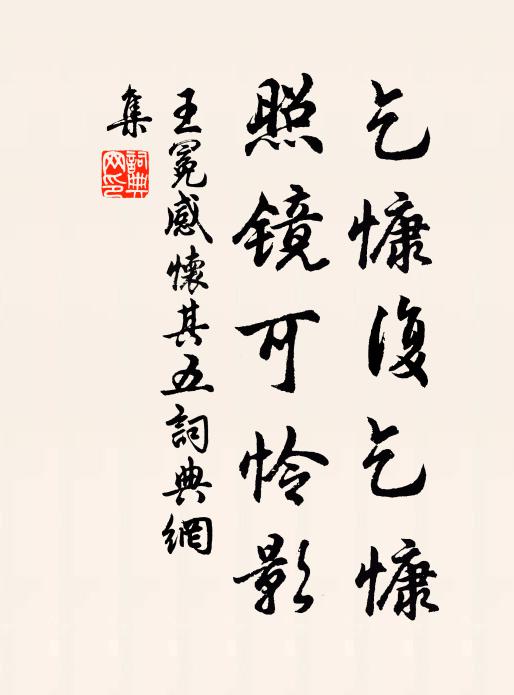 乞慷復乞慷
照镜可怜影
王冕感懷其五詞典網
集
詞典
网印